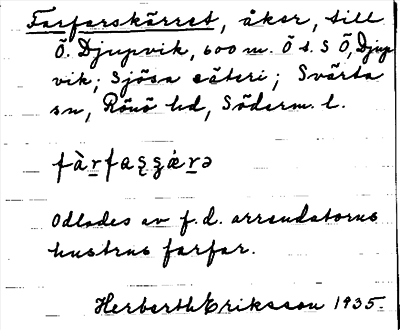 Farfarskärret, åker, till
Ö. Djupvik, 600 m. Ö t. S Ö, Djup
vik; Sjösa säteri; Svärta
sn, Rönö hd, Söderm. l.
Odlades av f.d. arrendatorns
hustrus farfar.
Herberth Eriksson 1935.